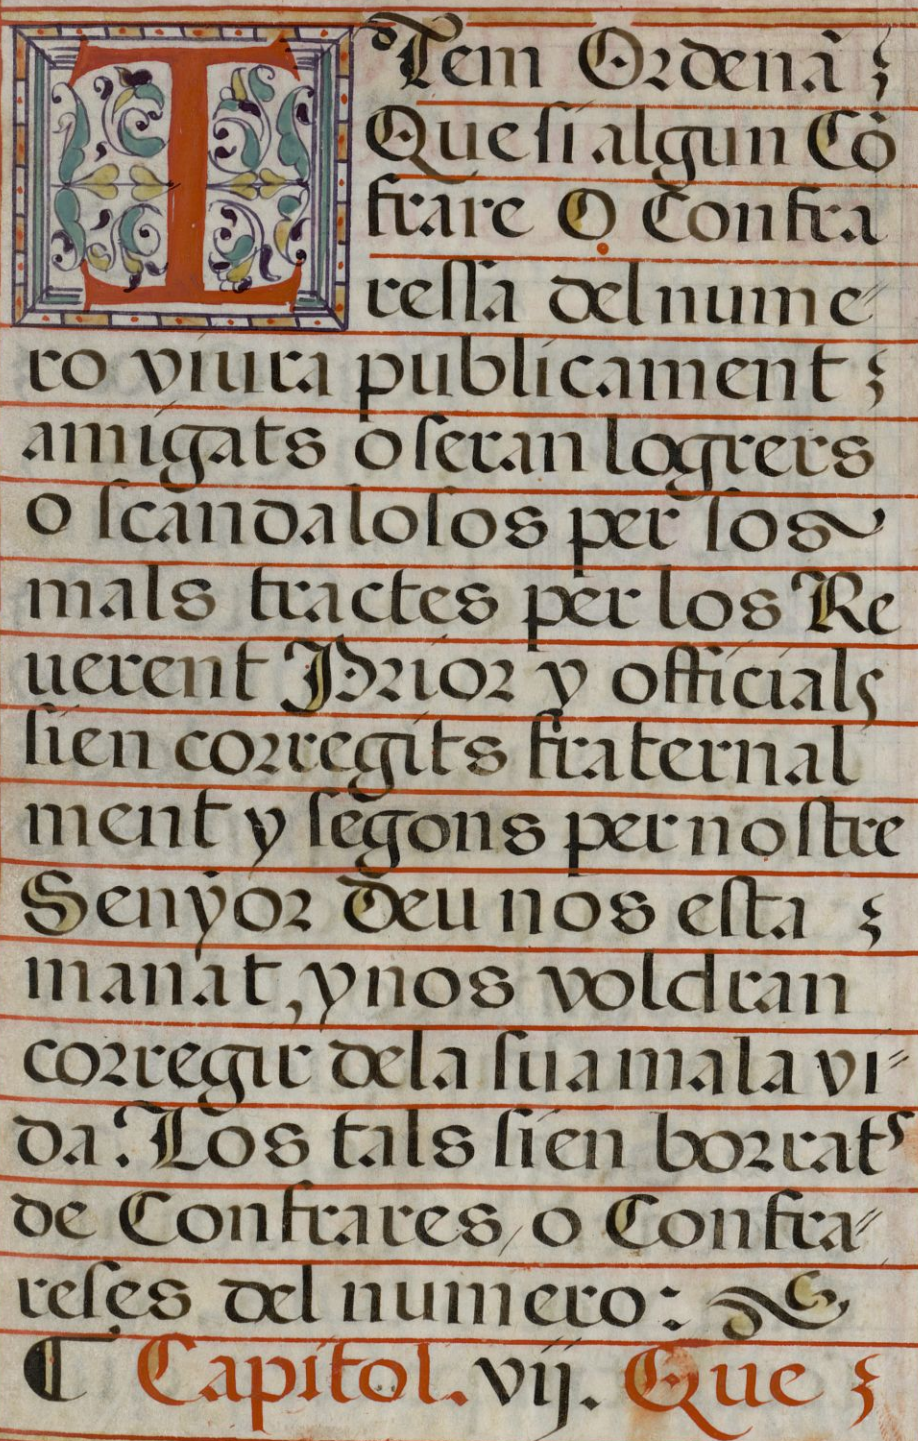 ITem Ordenā
Que si algun Cō
frare O Confra
ressa del nume-
ro viura publicament
amigats o seran logrers
o scandalosos per sos
mals tractes per los Re
uerent Prior y officials
sien corregits fraternal
ment y segons per nostre
Senyor deu nos esta
manat, y nos voldran
corregir dela sua mala vi-
da. Los tals sien borrats
de Confrares / o Confra-
reses del numero:
¶ Capitol. vij. Que